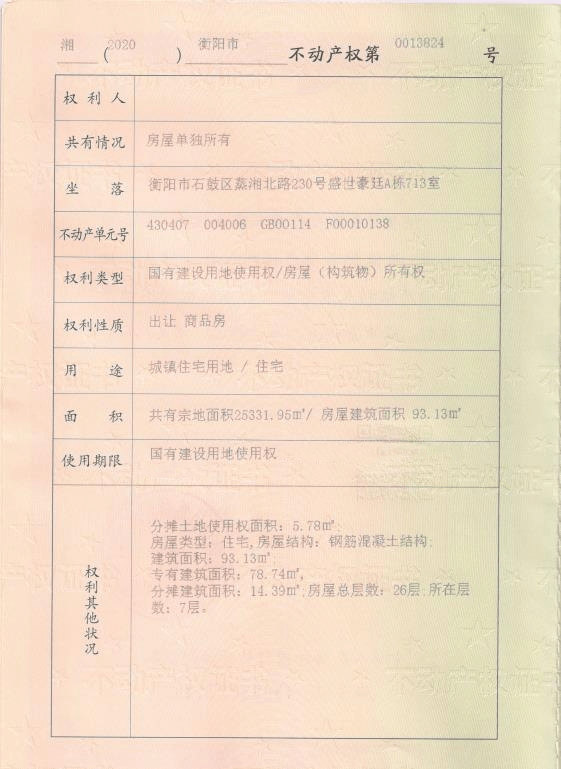 湘(2020)衡阳市不动产权第0013824号
权利人
共有情况 房屋单独所有
坐落 衡阳市石鼓区蒸湘北路230号盛世豪廷A栋713室
不动产单元号 430407 004006 GB00114 F00010138
权利类型 国有建设用地使用权/房屋（构筑物）所有权
权利性质 出让 商品房
用途 城镇住宅用地 / 住宅
面积 共有宗地面积25331.95㎡/ 房屋建筑面积 93.13㎡
使用期限 国有建设用地使用权
权利其他状况
分摊土地使用权面积：5.78㎡;
房屋类型：住宅,房屋结构：钢筋混凝土结构;
建筑面积：93.13㎡,
专有建筑面积：78.74㎡,
分摊建筑面积：14.39㎡;房屋总层数：26层;所在层
数：7层。